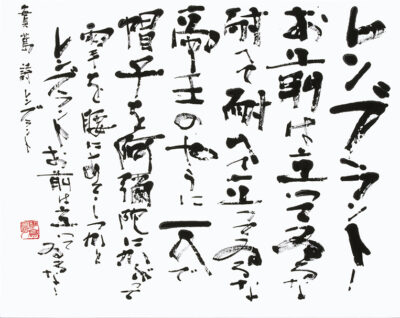 レンブラント!
お前は立つてゐるな
耐へて耐へて立つてゐるな
帝王のやうに一人で
帽子を阿彌陀にかぶつて
雫を腰にためてしつかりと
レンブラントお前は立つてゐるな!
真篤 詩 レンブラント